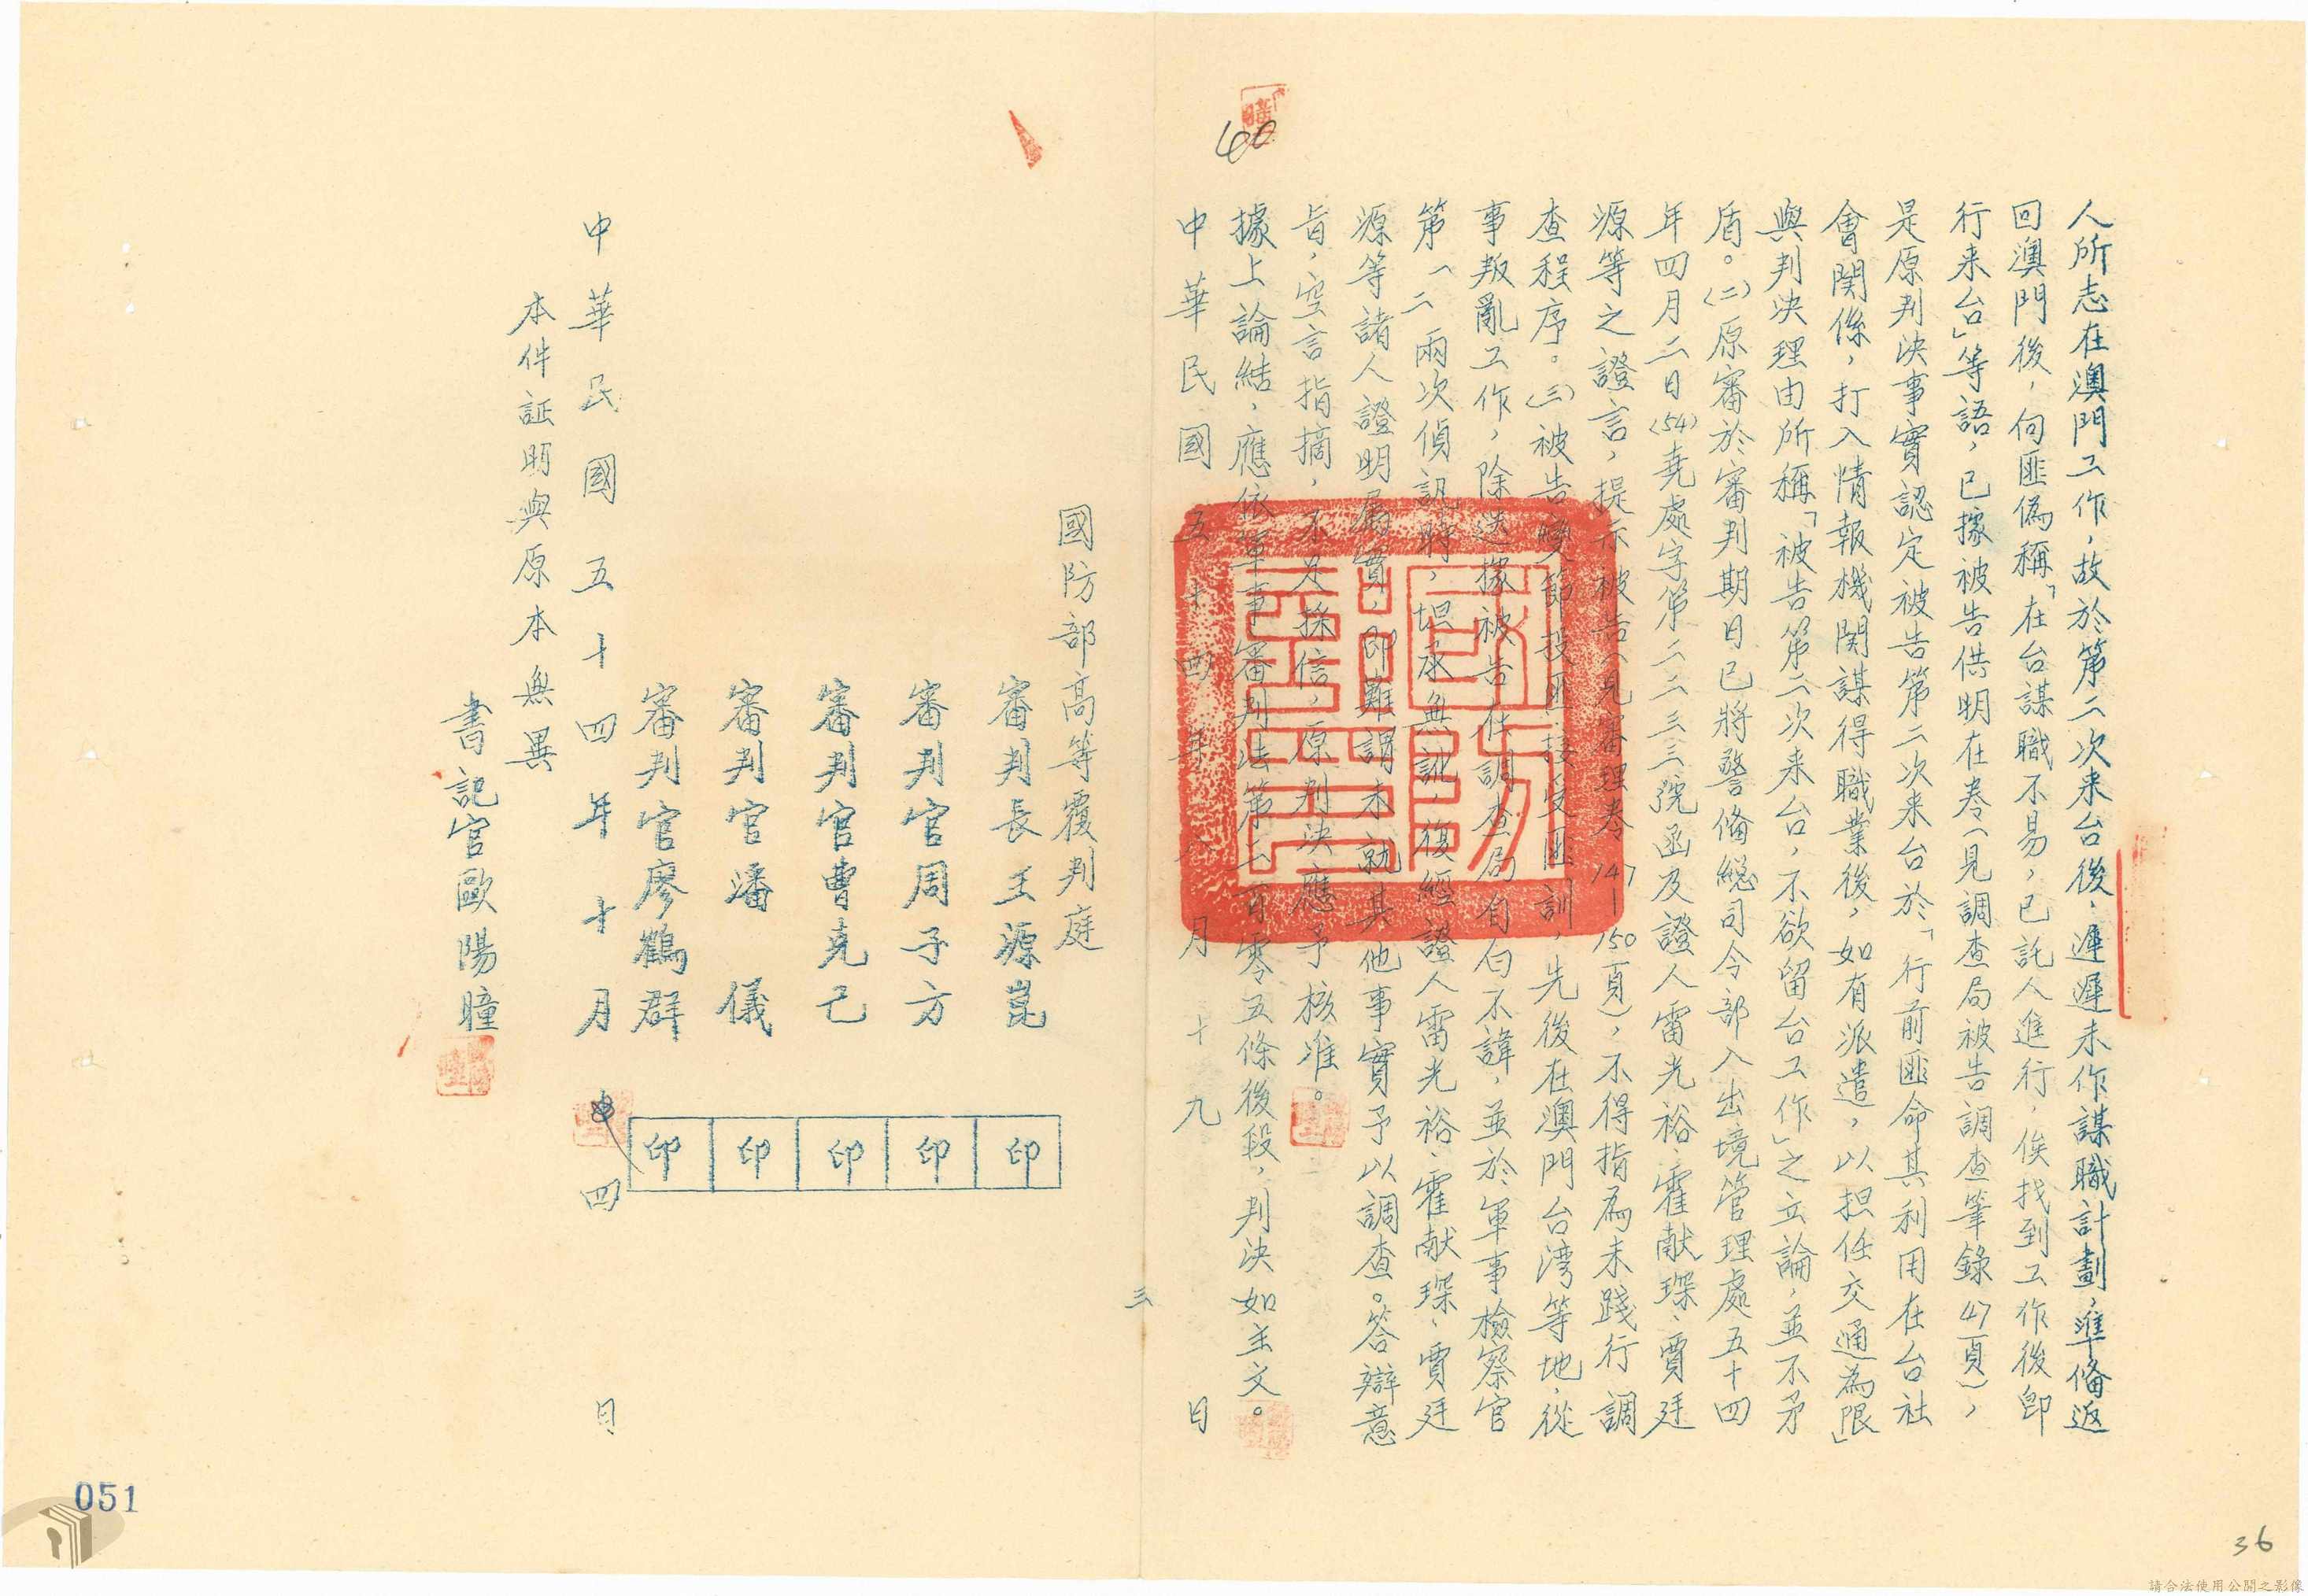 人所志在澳門工作，故於第二次来台後，遲遲未作謀職計劃，準俻返
回澳門後，向匪偽稱「在台謀職不易，已託人進行，俟找到工作後即
行来台」等語，已據被告供明在卷（見調查局被告調查筆錄47頁），
是原判決事實認定被告第二次来台於「行前匪命其利用在台社
會関係，打入情報機関謀得職業後，如有派遣，以担任交通為限」
與判決理由所稱「被告第二次来台，不欲留台工作」之立論，並不矛
盾。(二)原審於審判期日已將警俻總司令部入出境管理處五十四
年四月二日(54)堯處字第二二三三號函及證人雷光裕、霍献琛、賈廷
源等之證言，提示被告（見審理卷147—150頁），不得指為未踐行調
查程序。(三)被告變節投匪，接受匪訓，先後在澳門台湾等地，從
事叛亂工作，除迭據被告在調查局自白不諱，並於軍事檢察官
第一二兩次偵訊時，坦承無訛，復經證人雷光裕、霍献琛、賈廷
源等諸人證明屬實，即難謂未就其他事實予以調查。答辯意
旨，空言指摘，不足採信，原判決應予核准。
據上論結，應依軍事審判法第二百零五條後段，判決如主文。
中華民國五十四年八月十九日
三
國防部高等覆判庭
審判長王源崑 印
審判官周子方 印
審判官曹克己 印
審判官潘儀 印
審判官廖鶴群 印
中華民國五十四年十月四日
本件証明與原本無異
書記官歐陽瞳
40
051
36
請合法使用公開之影像